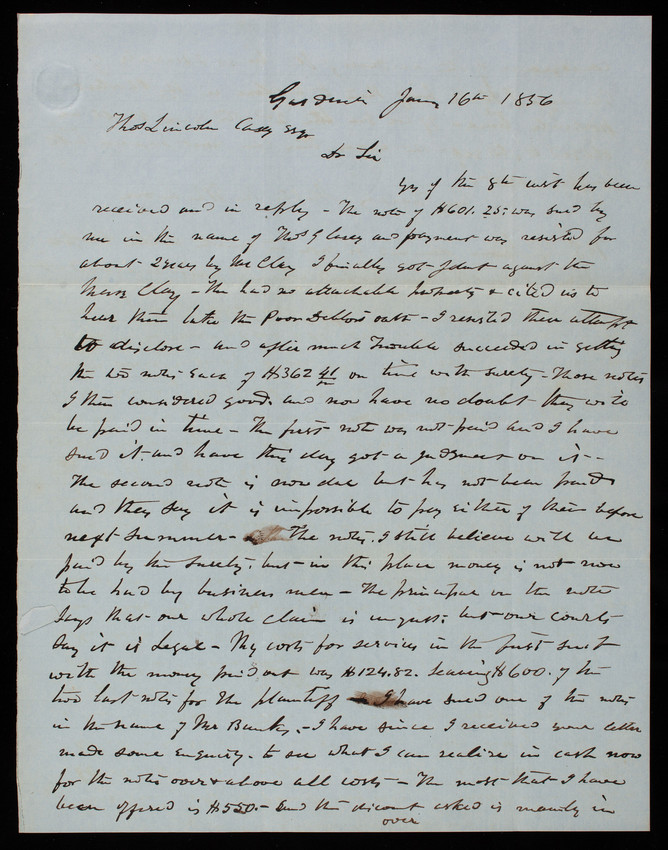 Gardiner Jany 16th 1856
Thos Lincoln Casey Esqr
Dr Sir
Yrs of the 8th inst has been
received and in reply - The note of $601.25 was sued by
me in the name of Thos L Casey and payment was resisted for
about 2 years by Mr Clay I finally got Jdmt against the
Clay - He had no attachable property & cited us to
hear him take the Poor Debtors oath - I resisted their attempt
to disclose - and after much trouble succeeded in getting
the two notes each of $362 41 on time with surety - Those notes
I then considered good and now have no doubt they will
be paid in time - The first note was not paid and I have
sued it and have this day got a judgment on it -
The second note is now due but has not been paid
and they say it is impossible to pay either of them before
next Summer - The notes I still believe will be
paid by the surety, but in this place money is not now
to be had by business men - The principal on the note
says that our whole claim is unjust; but our courts
say it is Legal - My costs for services in the first suit
with the money paid out was $124.82. leaving $600. of the
two last notes for the plaintiff - I have sued one of the notes
in the name of Mr Banks, - I have since I received your letter
made some enquiry - to see what I can realize in cash now
for the notes over & above all costs - The most that I have
been offered is $550 - and the discount asked is mainly in
over